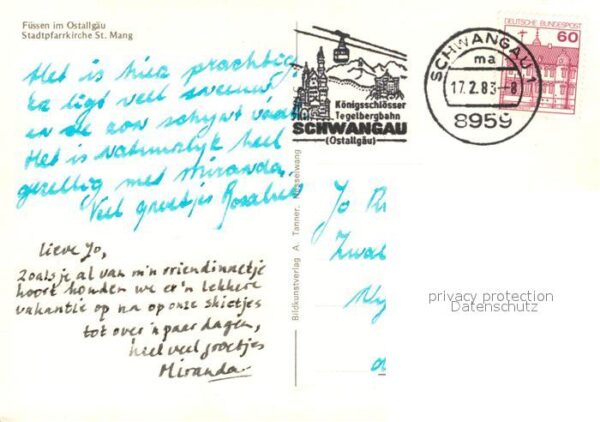 Füssen im Ostallgäu
Stadtpfarrkirche St. Mang
Het is hier prachtig
Er ligt veel sneeuw
en de zon schijnt
Het is natuurlijk heel
gezellig met Miranda.
Veel groetjes
Lieve Jo,
Zoals je al van m'n vriendinnetje
hoort houden we er'n lekkere
vakantie op na op onze skietjes
tot over 'n paar dagen,
heel veel groetjes
Miranda
Bildkunstverlag A. Tanner,
Königsschlösser
Tegelbergbahn
SCHWANGAU
(Ostallgäu)
SCHWANGAU 1
ma
17.2.83-8
8959
DEUTSCHE BUNDESPOST
60
Jo
privacy protection
Datenschutz